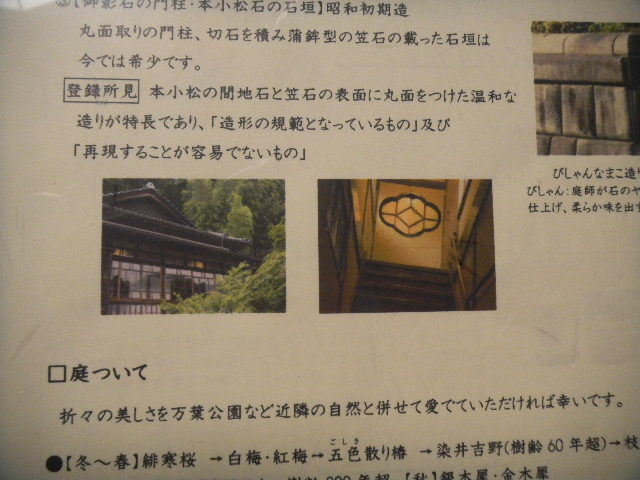 ③【御影石の門柱・本小松石の石垣】昭和初期造
丸面取りの門柱、切石を積み蒲鉾型の笠石の載った石垣は
今では希少です。
登録所見 本小松の間地石と笠石の表面に丸面をつけた温和な
造りが特長であり、「造形の規範となっているもの」及び
「再現することが容易でないもの」
びしゃんなまこ造り
びしゃん：庭師が石のヤ
仕上げ、柔らか味を出す
□庭ついて
折々の美しさを万葉公園など近隣の自然と併せて愛でていただければ幸いです。
こしき
●【冬～春】緋寒桜 →白梅・紅梅→五色散り椿 →染井吉野(樹齢60年超)→枝
【秋】銀木犀・金木犀